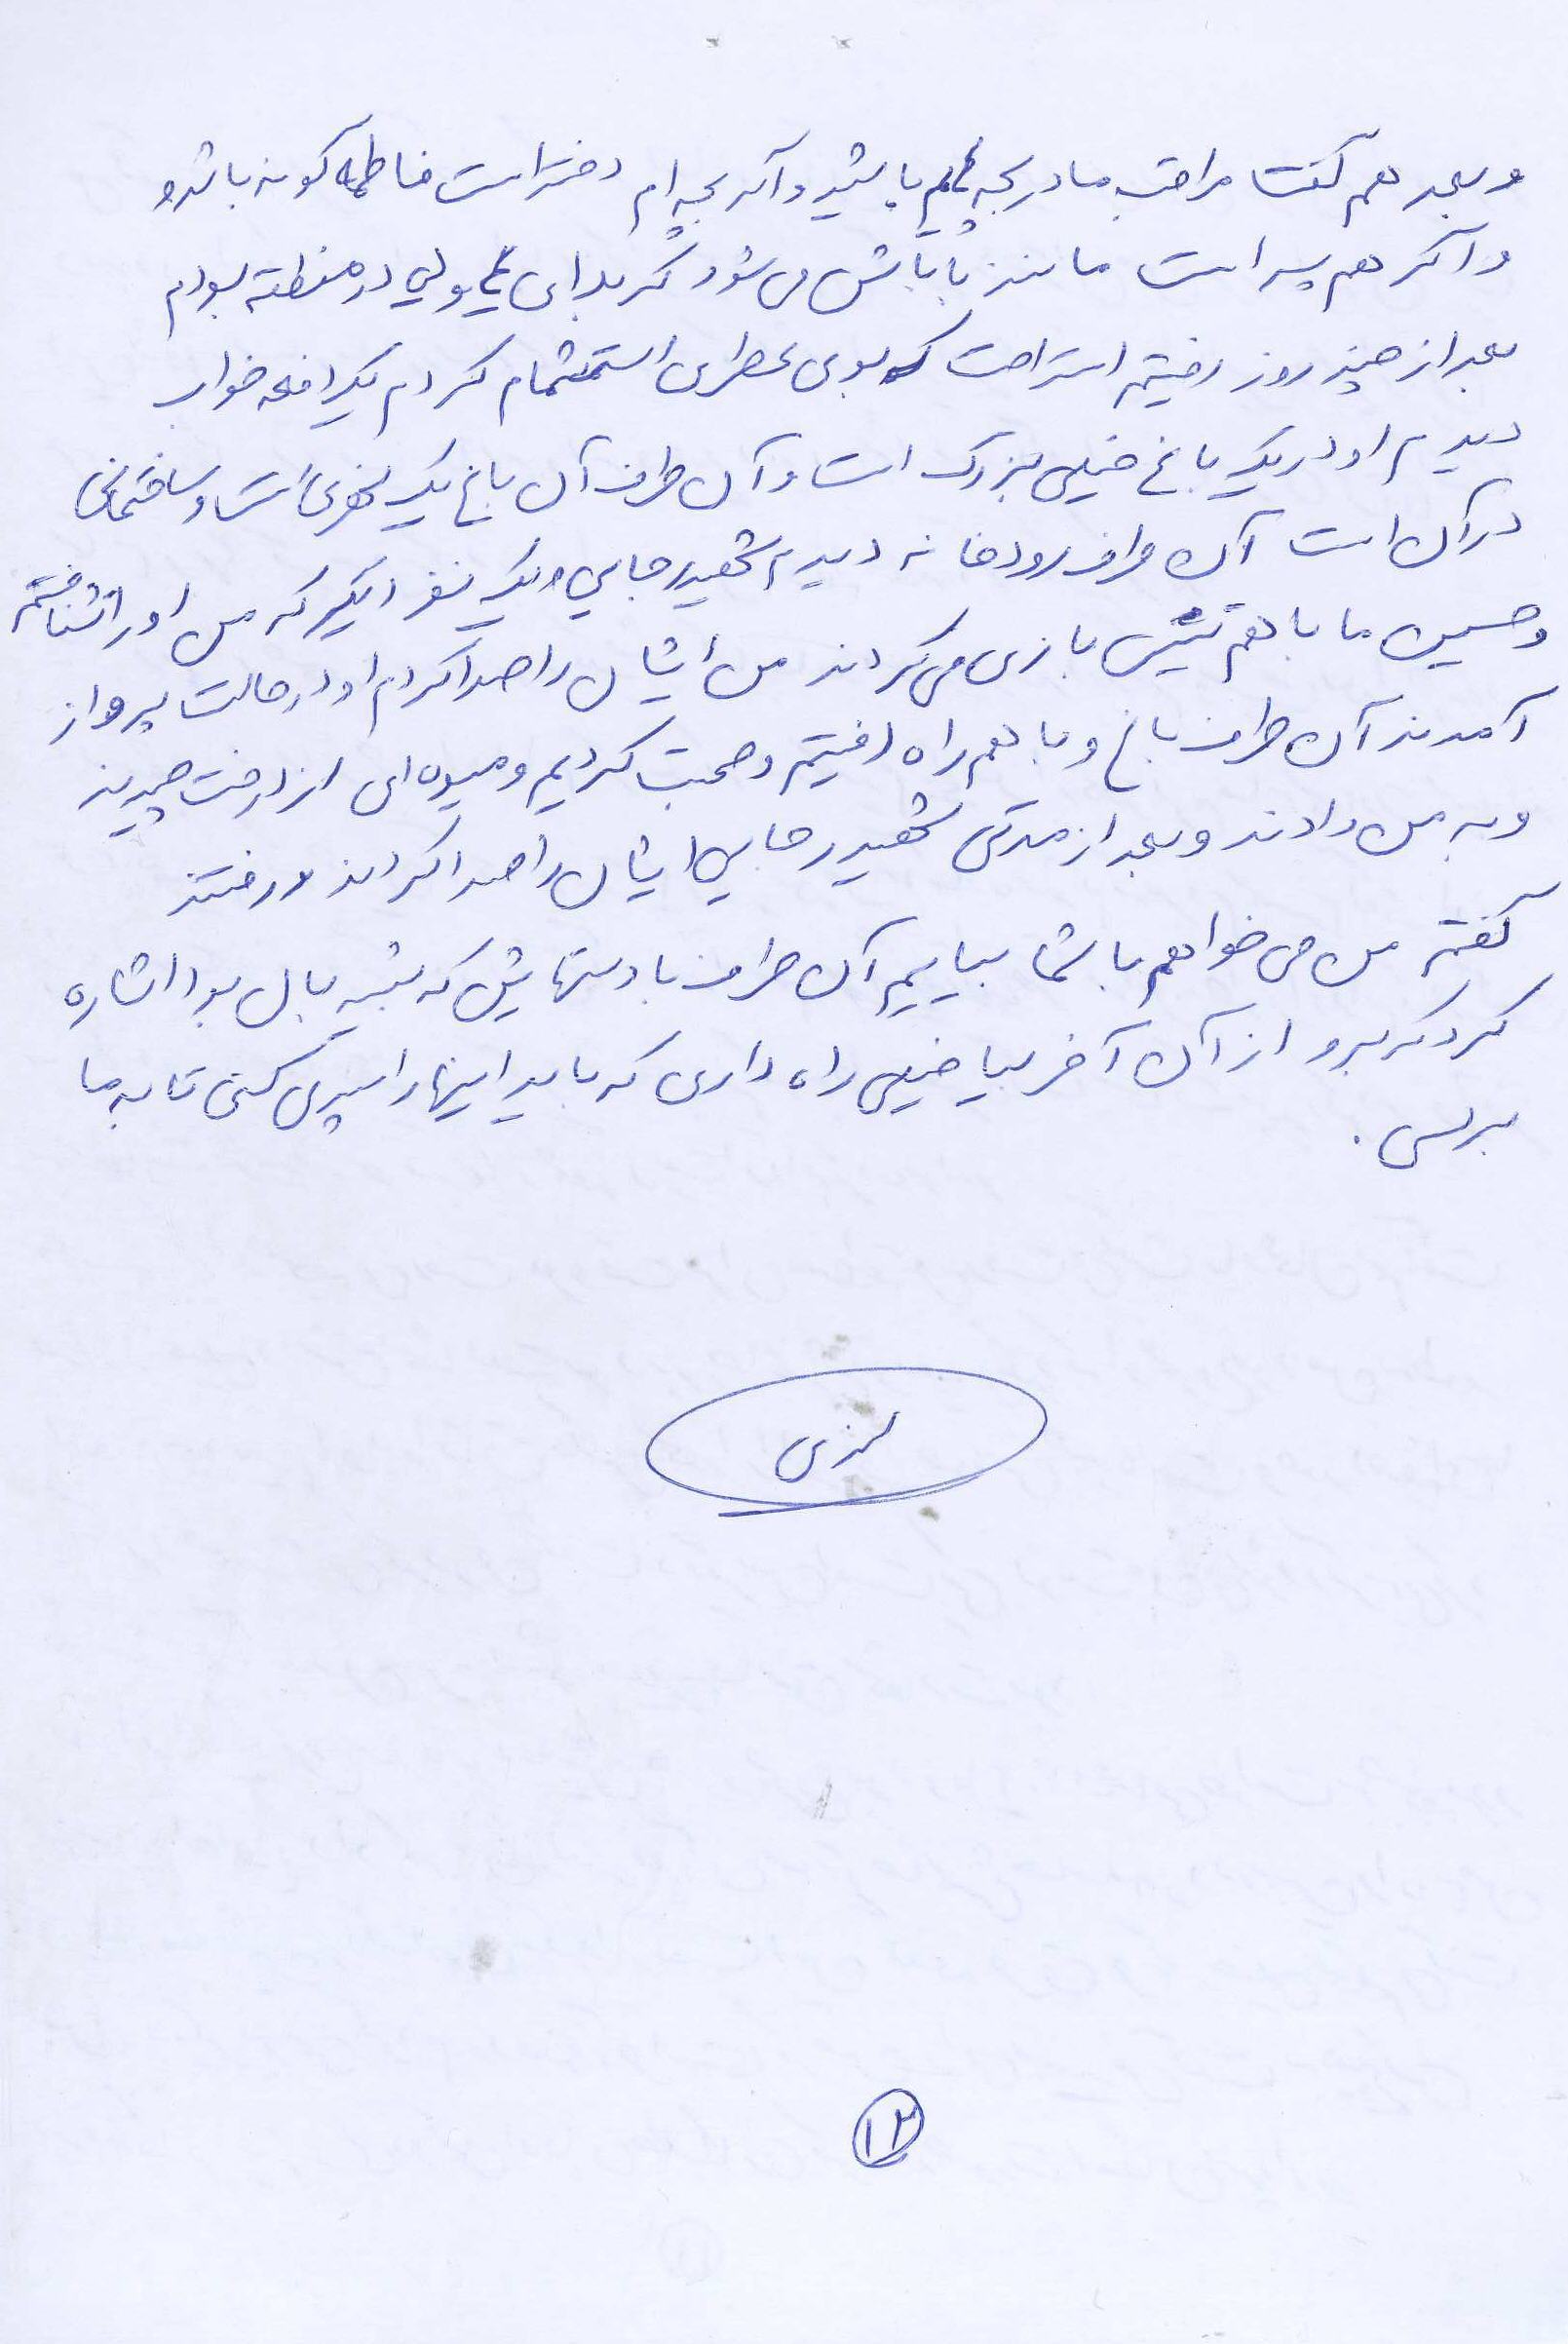 و بعد هم گفت مراقب مادر بچه باشید و اگر بچه ام دختر است فاطمه گونه باشد و
و اگر هم پسر است مانند باباش می شود کربلای ۴ ولی در منطقه بودم
بعد از چند روز رفتیم استراحت که بوی عطری استشمام کردم یکدفعه خواب
دیدم او در یک باغ خیلی بزرگ است و آن طرف آن باغ یک نهری است و ساختمانی
در آن است آن طرف رودخانه دیدم شهید رجایی و یک نفر دیگر که من او را نشناختم
و حسین ما با هم تنیس بازی می کردند من ایشان را صدا کردم او در حالت پرواز
آمدند آن طرف باغ و با هم راه رفتیم و صحبت کردیم و میوه ای از درخت چیدند
و به من دادند و بعد از مدتی شهید رجایی ایشان را صدا کردند و رفتند
گفتم من می خواهم با شما بیایم آن طرف با دستهایش که شبیه بال بود اشاره
کرد که برو از آن آخر بیا خیلی راه داری که باید اینها را سپری کنی تا به ما
برسی .
۱۲